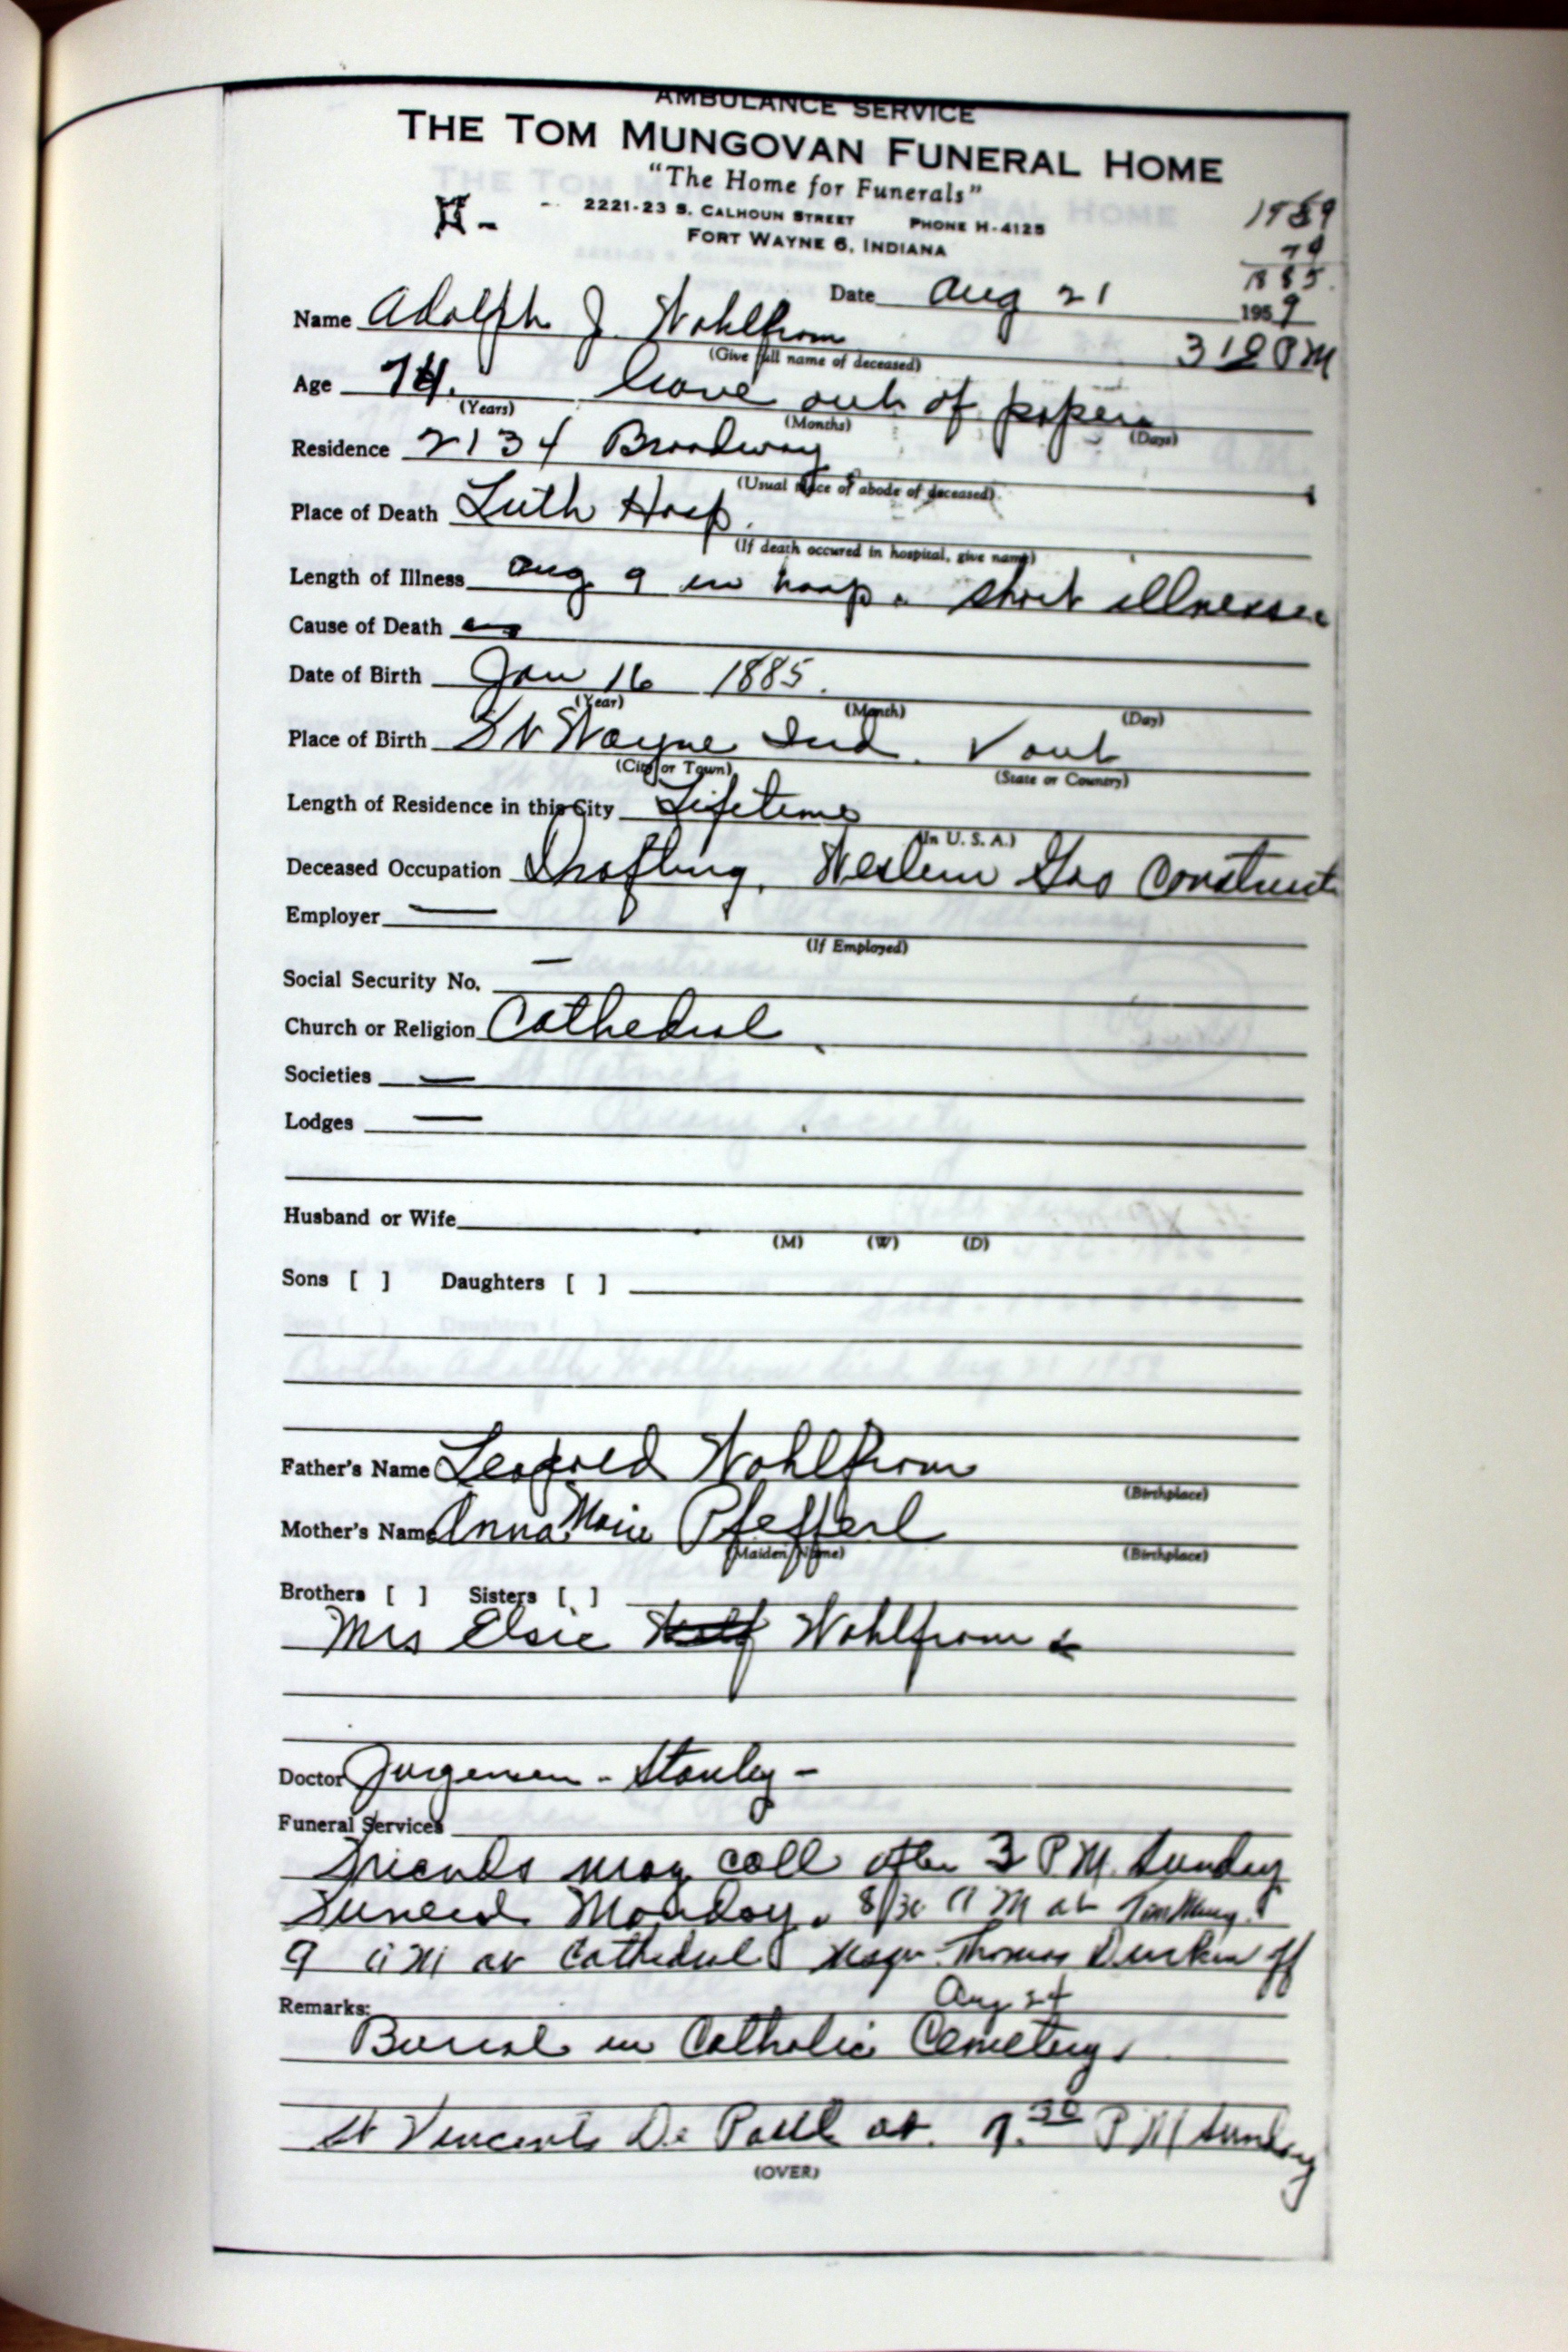 AMBULANCE SERVICE
THE TOM MUNGOVAN FUNERAL HOME
"The Home for Funerals"
2221-23 S. CALHOUN STREET PHONE H-4125
FORT WAYNE 6, INDIANA
1959
74
1885.
Date Aug 21 1959
Name Adolph J. Wohlfrom 3 10 PM
(Give full name of deceased)
Age 74. leave out of papers
(Years) (Months) (Days)
Residence 2134 Broadway
(Usual place of abode of deceased)
Place of Death Luth Hosp.
(If death occured in hospital, give name)
Length of Illness Aug 9 in hosp. short illness
Cause of Death
Date of Birth Jan 16 1885.
(Year) (Month) (Day)
Place of Birth Ft Wayne Ind. V out
(City or Town) (State or Country)
Length of Residence in this City Lifetime
(In U. S. A.)
Deceased Occupation Drafting, Western Gas Construct
Employer —
(If Employed)
Social Security No. —
Church or Religion Cathedral
Societies —
Lodges —
Husband or Wife
(M) (W) (D)
Sons [ ] Daughters [ ]
Father's Name Leopold Wohlfrom
(Birthplace)
Mother's Name Anna Marie Pfefferl
(Maiden Name) (Birthplace)
Brothers [ ] Sisters [ ]
Mrs Elsie Wohlfrom
Doctor Jurgensen - Stanley -
Funeral Services
Friends may call after 3 P.M. Sunday
Funeral Monday. 8/30 A M at Tom Mung.
9 A M at Cathedral Msgr. Thomas Durkin off
Aug 24
Remarks:
Burial in Catholic Cemetery.
St Vincents De Paul at 7.30 P M Sunday
(OVER)